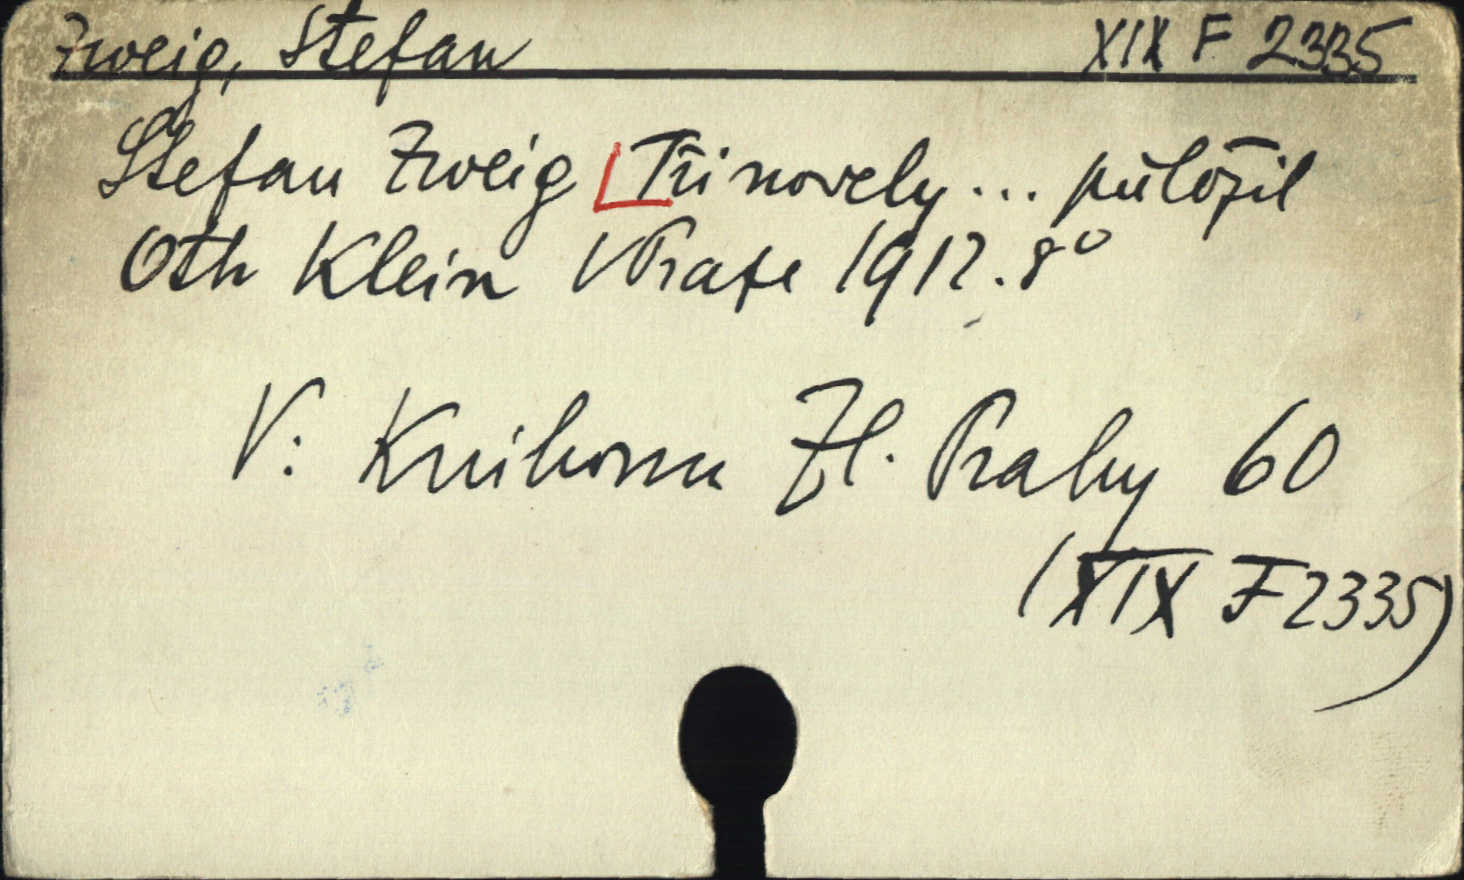 Zweig, Stefan XIX F 2335
Stefan Zweig Tři novely... přeložil
Oth Klein V Praze 1912. 8°
V: Knihovna Zl. Prahy 60
(XIX F 2335)